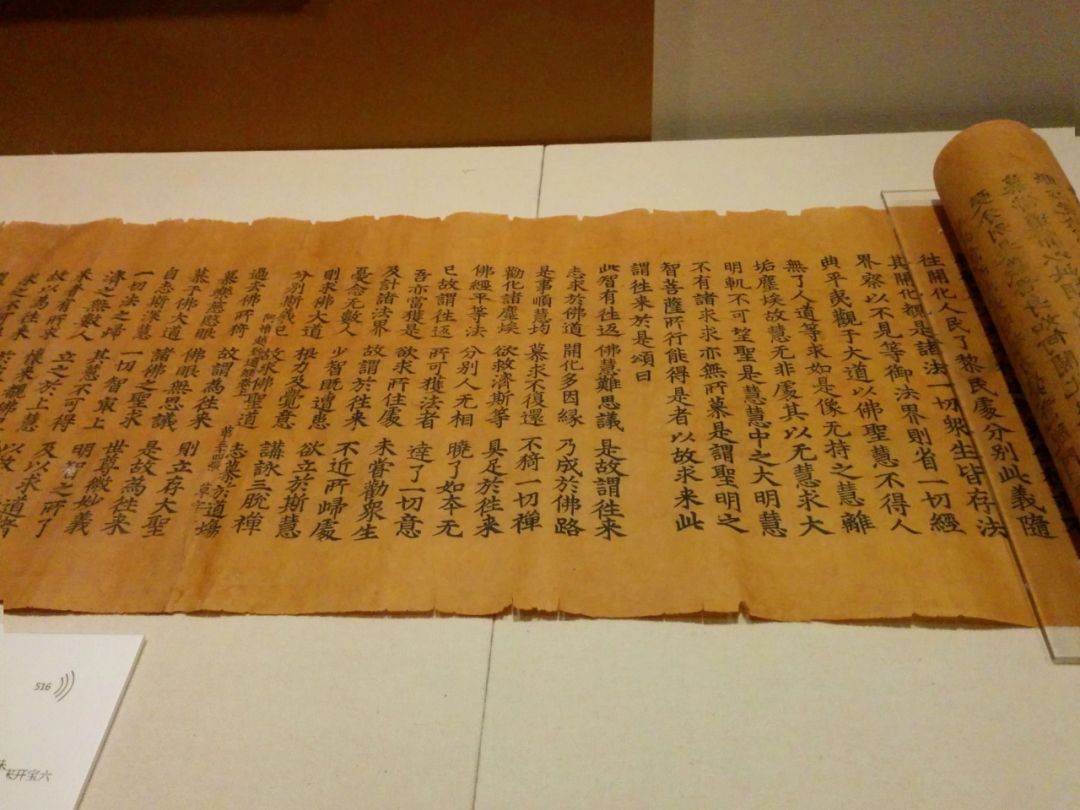 往開化人民了黎民處分別此義隨
其開化觀是諸法一切眾生皆存法
界察以不見等御法界則省一切經
典平夷觀于大道以佛聖慧不得人
無了人道等求如是像无持之慧離
垢塵埃故慧无非處其以无慧求大
明軌不可望聖是慧慧中之大明慧
不有諸求求亦無所慕是謂聖明之
智菩薩所行能得是者以故求来此
謂往来於是頌曰
此智有往返 佛慧難思議 是故謂往来
志求於佛道 開化多因縁 乃成於佛路
是事順慧均 慕求不復還 不猗一切禪
勸化諸塵埃 欲救濟斯等 具足於往来
佛經平等法 分別人无相 曉了如夲无
已故謂往返 所可獲法者 達了一切意
吾亦當獲是 欲求所住處 未甞勸眾生
及計諸法界 故謂於往来 不近所歸處
憂念无數人 少智既遠患 欲立於斯慧
則求佛大道 根力及覺意 講詠三脫禪
分別斯義已 故求佛聖道 志慕於道場
過去佛所猗 故謂為往来 則立存大聖
慕樂慈愍眼 佛眼無思議 是故為往来
慕于佛大道 諸佛之聖求 世尊微妙義
自志斯深慧 一切智最上 明智之所了
一切法之歸 其慧不可得 及以求道
濟之無數人 立之於上慧 以故道智
来者有所求
故以為往来
S16
开宝六